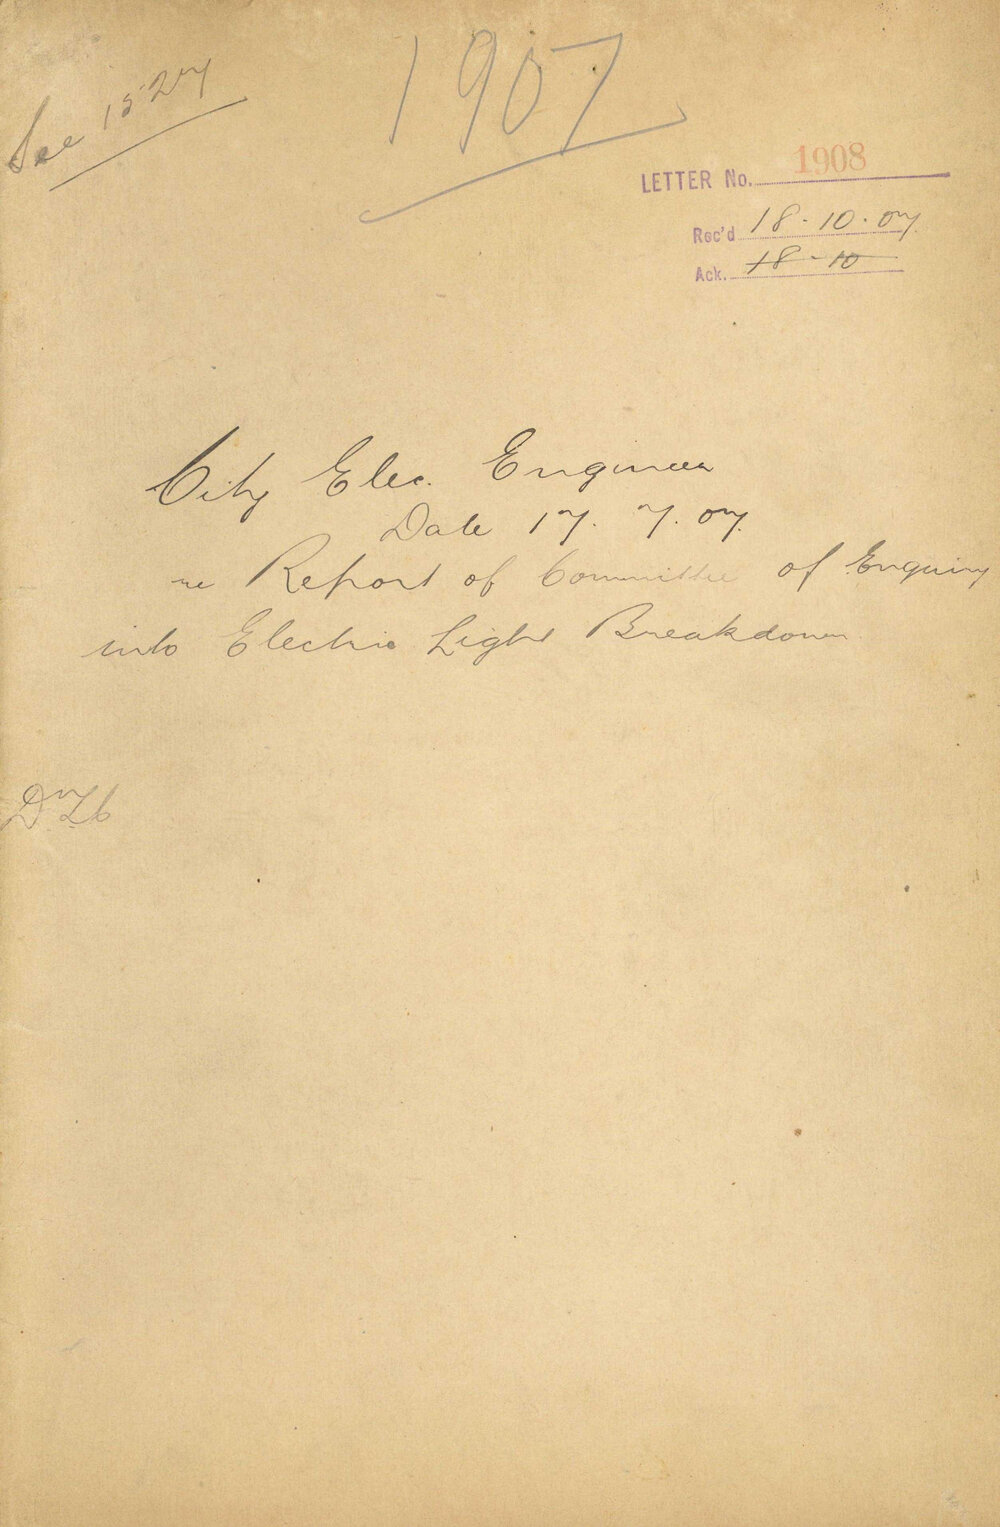 See 1527
1907
LETTER No. 1908
Rec'd 18-10-07
Ack. 18-10
City Elec. Engineer
Date 17. 7. 07.
re Report of Committee of Enquiry
into Electric Light Breakdown